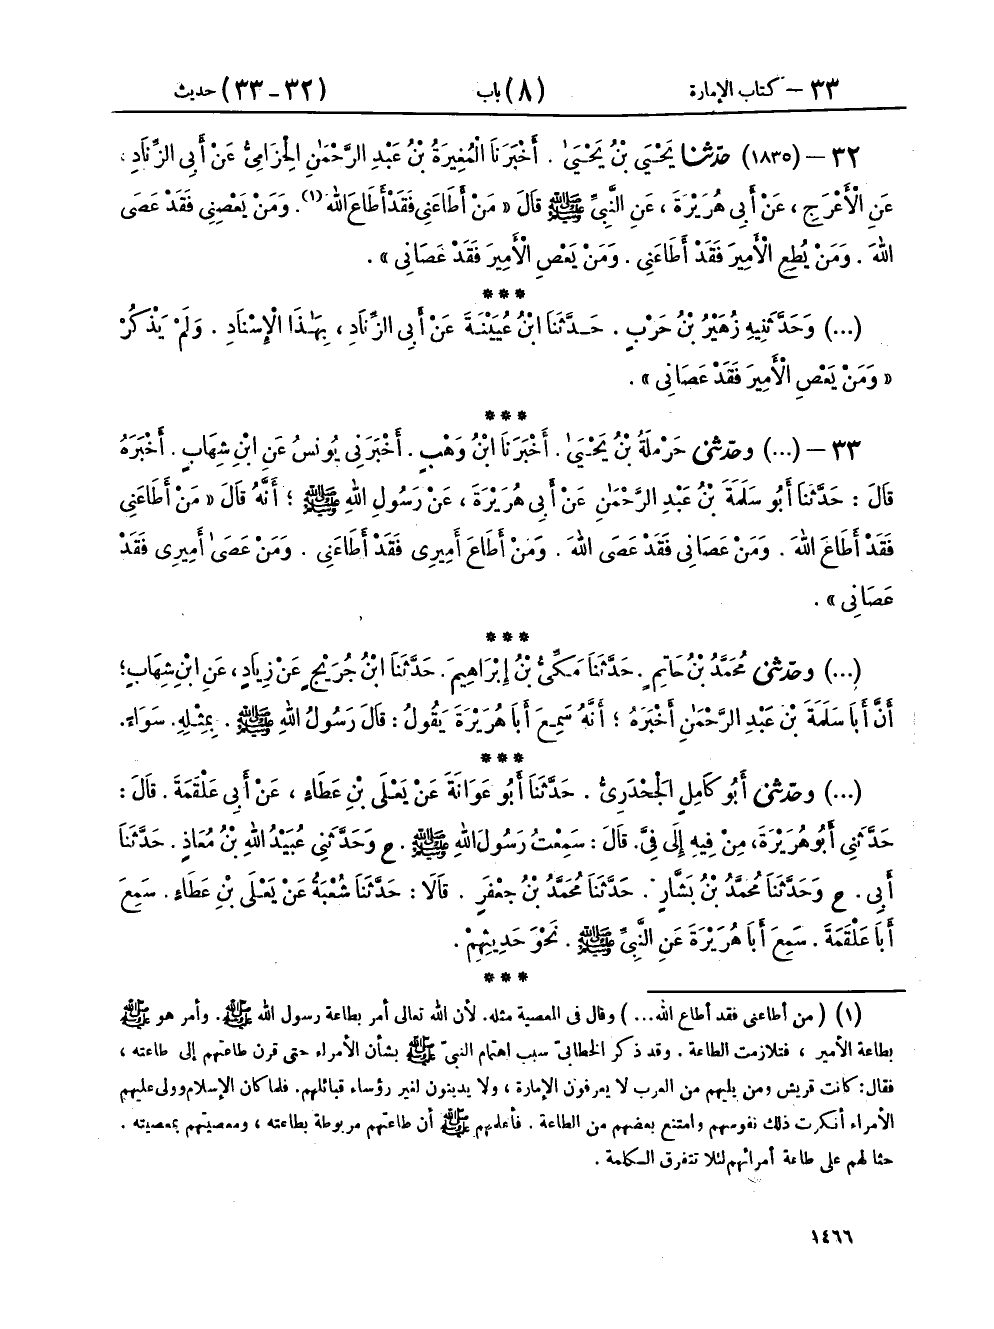 ٣٣ – كتاب الإمارة (٨) باب (٣٢ – ٣٣) حديث
٣٢ – (١٨٣٥) حدّثنا يَحْيَى بْنُ يَحْيَىٰ . أَخْبَرَنَا الْمُغِيرَةُ بْنُ عَبْدِ الرَّحْمَٰنِ الْحِزَامِىُّ عَنْ أَبِى الزِّنَادِ ،
عَنِ الْأَعْرَجِ ، عَنْ أَبِى هُرَيْرَةَ ، عَنِ النَّبِىِّ ﷺ قَالَ « مَنْ أَطَاعَنِى فَقَدْ أَطَاعَ اللهَ (١). وَمَنْ يَعْصِنِى فَقَدْ عَصَى
اللهَ . وَمَنْ يُطِعِ الْأَمِيرَ فَقَدْ أَطَاعَنِى . وَمَنْ يَعْصِ الْأَمِيرَ فَقَدْ عَصَانِى » .
***
(...) وَحَدَّثَنِيهِ زُهَيْرُ بْنُ حَرْبٍ . حَدَّثَنَا ابْنُ عُيَيْنَةَ عَنْ أَبِى الزِّنَادِ ، بِهَٰذَا الْإِسْنَادِ . وَلَمْ يَذْكُرْ
« وَمَنْ يَعْصِ الْأَمِيرَ فَقَدْ عَصَانِى » .
***
٣٣ – (...) وحدّثنى حَرْمَلَةُ بْنُ يَحْيَىٰ . أَخْبَرَنَا ابْنُ وَهْبٍ . أَخْبَرَنِى يُونُسُ عَنِ ابْنِ شِهَابٍ . أَخْبَرَهُ
قَالَ : حَدَّثَنَا أَبُو سَلَمَةَ بْنُ عَبْدِ الرَّحْمَٰنِ عَنْ أَبِى هُرَيْرَةَ ، عَنْ رَسُولِ اللهِ ﷺ ؛ أَنَّهُ قَالَ « مَنْ أَطَاعَنِى
فَقَدْ أَطَاعَ اللهَ . وَمَنْ عَصَانِى فَقَدْ عَصَى اللهَ . وَمَنْ أَطَاعَ أَمِيرِى فَقَدْ أَطَاعَنِى . وَمَنْ عَصَىٰ أَمِيرِى فَقَدْ
عَصَانِى » .
***
(...) وحدّثنى مُحَمَّدُ بْنُ حَاتِمٍ . حَدَّثَنَا مَكِّىُّ بْنُ إِبْرَاهِيمَ . حَدَّثَنَا ابْنُ جُرَيْجٍ عَنْ زِيَادٍ ، عَنِ ابْنِ شِهَابٍ ؛
أَنَّ أَبَا سَلَمَةَ بْنَ عَبْدِ الرَّحْمَٰنِ أَخْبَرَهُ ؛ أَنَّهُ سَمِعَ أَبَا هُرَيْرَةَ يَقُولُ : قَالَ رَسُولُ اللهِ ﷺ . بِمِثْلِهِ. سَوَاءً.
***
(...) وحدّثنى أَبُو كَامِلٍ الْجَحْدَرِىُّ . حَدَّثَنَا أَبُو عَوَانَةَ عَنْ يَعْلَى بْنِ عَطَاءٍ ، عَنْ أَبِى عَلْقَمَةَ . قَالَ :
حَدَّثَنِى أَبُو هُرَيْرَةَ، مِنْ فِيهِ إِلَى فِىَّ. قَالَ : سَمِعْتُ رَسُولَ اللهِ ﷺ . ح وَحَدَّثَنِى عُبَيْدُ اللهِ بْنُ مُعَاذٍ . حَدَّثَنَا
أَبِى . ح وَحَدَّثَنَا مُحَمَّدُ بْنُ بَشَّارٍ . حَدَّثَنَا مُحَمَّدُ بْنُ جَعْفَرٍ . قَالَا : حَدَّثَنَا شُعْبَةُ عَنْ يَعْلَى بْنِ عَطَاءٍ . سَمِعَ
أَبَا عَلْقَمَةَ . سَمِعَ أَبَا هُرَيْرَةَ عَنِ النَّبِىِّ ﷺ . نَحْوَ حَدِيثِهِمْ .
***
(١) ( من أطاعنى فقد أطاع الله... ) وقال فى المعصية مثله. لأن الله تعالى أمر بطاعة رسول الله ﷺ. وأمر هو ﷺ
بطاعة الأمير ، فتلازمت الطاعة . وقد ذكر الخطابىّ سبب اهتمام النبىّ ﷺ بشأن الأمراء حتى قرن طاعتهم إلى طاعته ،
فقال: كانت قريش ومن يليهم من العرب لا يعرفون الإمارة ، ولا يدينون لغير رؤساء قبائلهم. فلما كان الإسلام وولى عليهم
الأمراء أنكرت ذلك نفوسهم وامتنع بعضهم من الطاعة . فأعلمهم ﷺ أن طاعتهم مربوطة بطاعته ، ومعصيتهم بمعصيته .
حثا لهم على طاعة أمرائهم لئلا تتفرق الكلمة .
١٤٦٦